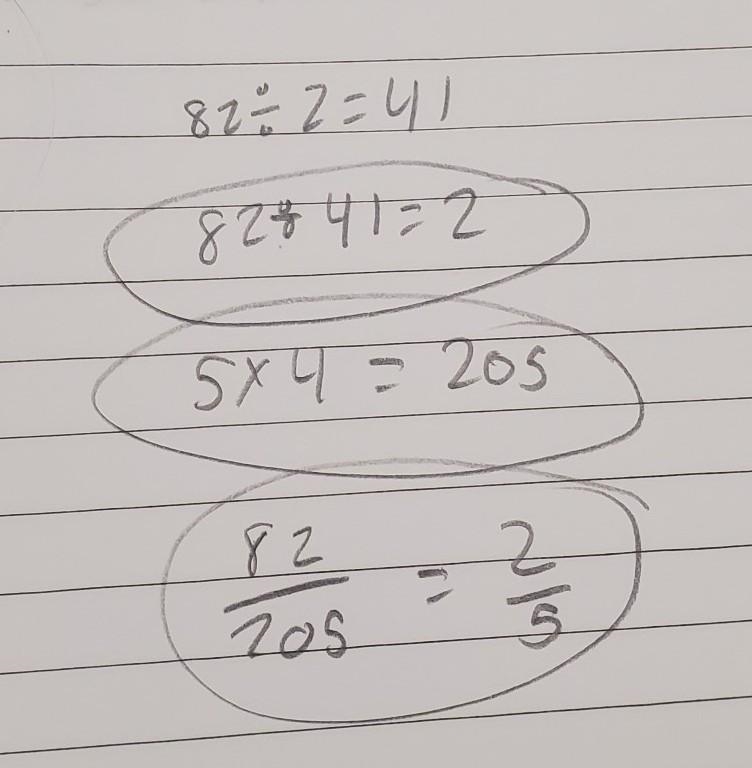 82 ÷ 2 = 41
82 ÷ 41 = 2
5 x 4 = 205
82/205 = 2/5